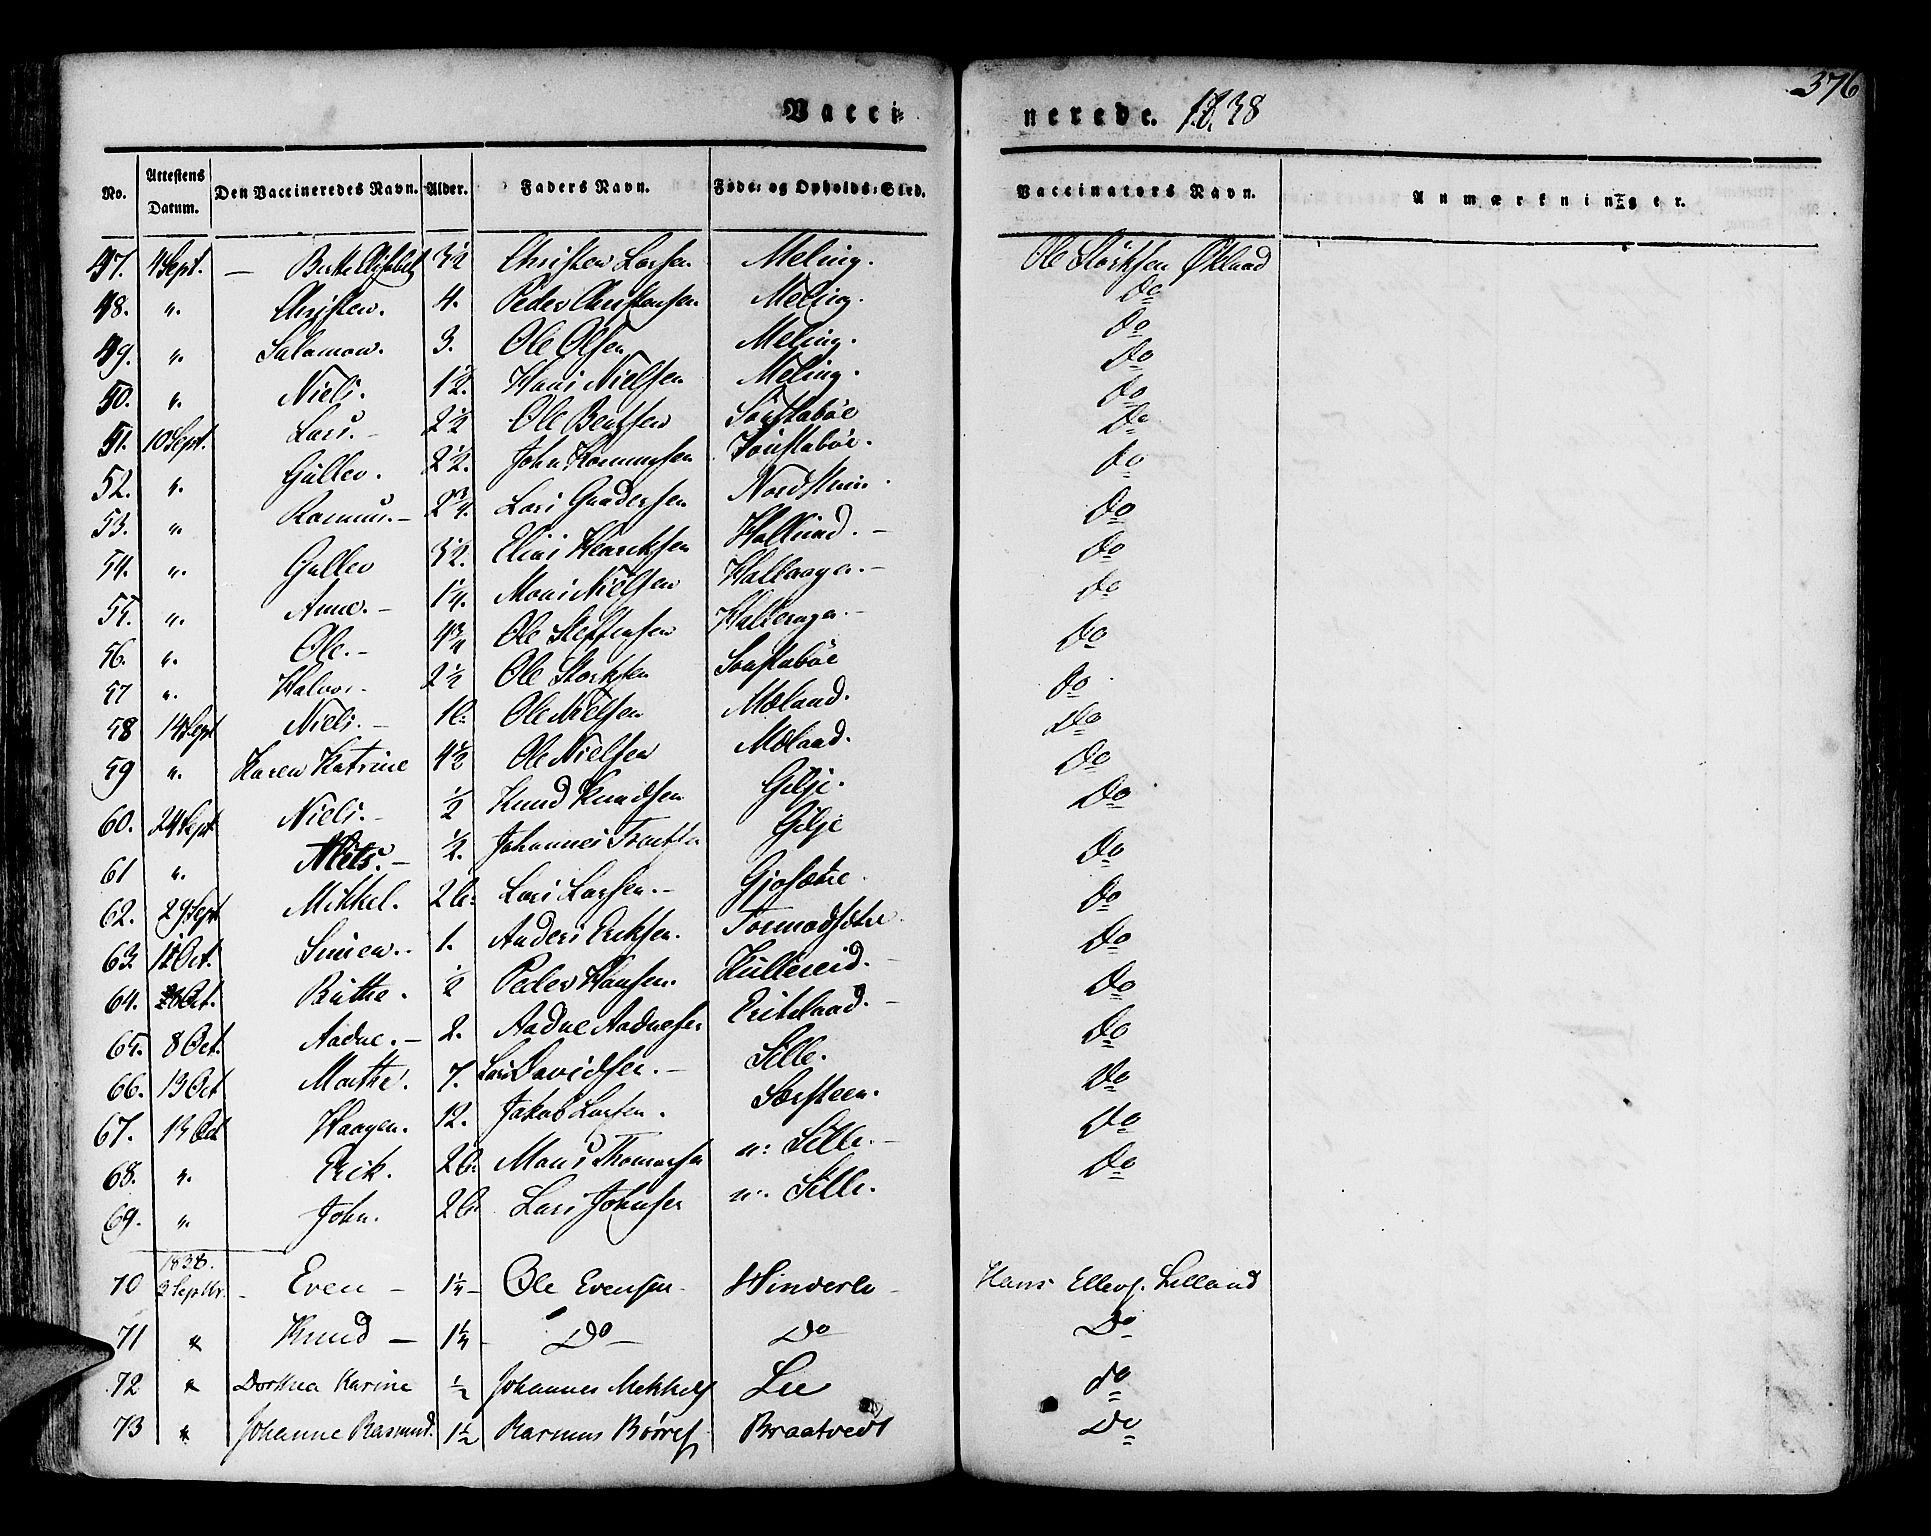 376
Vacci-nerede. 1838
No. Attestens Datum. Den Vaccineredes Navn. Alder. Faders Navn. Føde- og Opholds-Sted. Vaccinators Navn. Anmærkninger.
47. 4 Sept. — Berthe Elisabeth 3½ Christen Larsen Meling. Ole Størksen Økland
48. " Christen. 4. Peder Christensen Meling. Do
49. " Salamon. 3. Ole Olsen Meling. Do
50. " Niels. 1½. Hans Nielsen Meling. Do
51. 10 Sept. Lars. – 2½ Ole Bentsen Do
52. " Gullev. 2½. John Rasmussen Do
53. " Rasmus. – 2¾. Lars Gundersen Do
54. " Gullev 3½. Elias Henriksen Do
55. " Anne. – 1¼. Mons Nielsen Do
56. " Ole. – 4¾ Ole Steffensen Do
57 " Halvor. 2½ Ole Størksen Do
58 14 Sept Niels. – Ole Nielsen Mæland. Do
59 " Karen Katrine 4½ Ole Nielsen Mæland. Do
60. 24 Sept Niels. – ½ Knud Knudsen Gilje. Do
61 " Niels. – ½. Johannes Gilje Do
62. 29 Sept Mikkel. Lars Larsen. – Gjosætre. Do
63. Oct. Simen. – 1. Anders Eriksen. Do
64. Oct. Birthe. ½ Peder Hansen. Do
65. 8 Oct. Aadne. – 2. Aadne Aadnesen Do
66. 13 Oct Marthe. 7. Lars Davidsen. – Sille. Do
67. 13 Oct Haagen. 12. Jakob Larsen. Særsteen. Do
68. " Erik. Mons Thomassen n: Sille. – Do
69. " John. Lars Johnsen n: Sille. Do
1838.
70 2 Septbr. – Even – 1¼ – Ole Evensen – Hinderli – Hans Ellevs. Lilland
71 " Knud – 1¼ – Do – Do Do
72 " Dorthea Karine ½ Johannes Mikkels Lie do
73 " Johanne Rasmusd. 1½ Rasmus Braatvedt Do